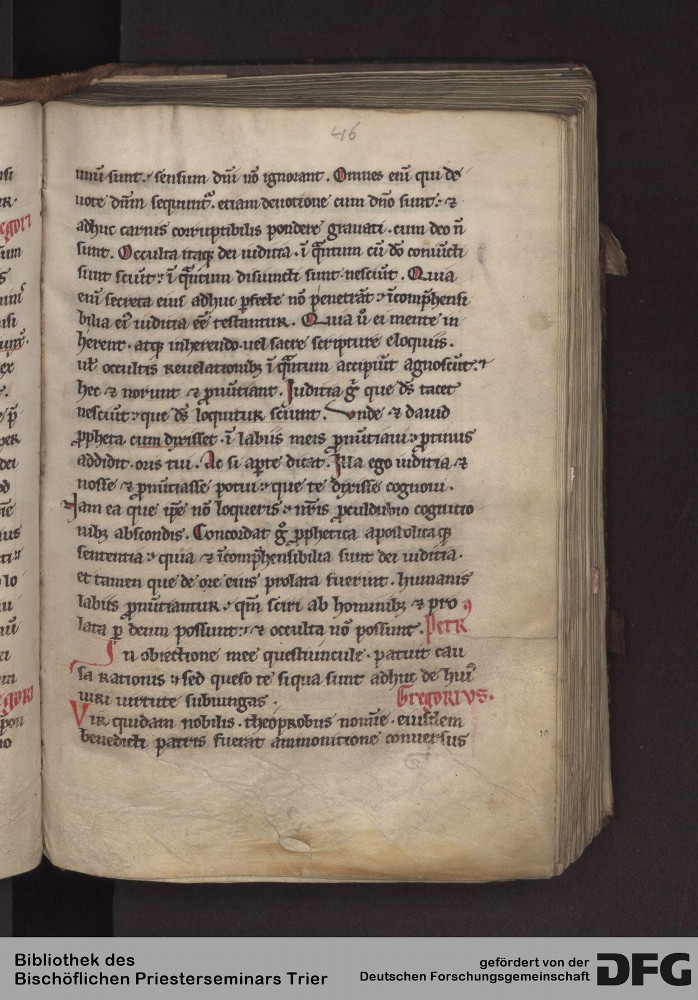 46
unū sunt. sensum dn̄i nō ignorant. Omnes enī qui de
uote dn̄m sequunt᷑. etiam deuotione cum dn̄o sunt. ⁊
adhuc carnis corruptibilis pondere grauati. cum deo n̄
sunt. Occulta itaq; dei iudicia. ī q̄ntum cū dō coniūcti
sunt sciūt. ī q̄ntum disiuncti sunt nesciūt. Quia
enī secreta eius adhuc ꝑfecte nō penetrāt. īcomp̄hensi
bilia ei᷑ iudicia eē testantur. Quia ū ei mente in
herent. atq; inherendo uel sacre scripture eloquiis.
ut̄ occultis reuelationib; ī q̄ntum accipiūt agnoscūt. ⁊
hec ⁊ norunt ⁊ ꝓnūtiant. Iudicia g̊ que ds̄ tacet
nesciūt. que ds̄ loquitur sciunt. Vnde ⁊ dauid
ꝓpheta cum dixisset. ī labiis meis ꝓnūtiaui. protinus
addidit. oris tui. Ac si aꝑte dicat. Illa ego iudicia ⁊
nosse ⁊ ꝓnūtiasse potui. que te dixisse cognoui.
Nam ea que ip̄e nō loqueris. nr̄is ꝓculdubio cognitio
nib; abscondis. Concordat g̊ ꝓphetica apostolica q;
sententia. quia ⁊ īcomp̄hensibilia sunt dei iudicia.
et tamen que de ore eius prolata fuerint. humanis
labiis ꝓnūtiantur. qm̄ sciri ab hominib; ⁊ pro
lata ꝑ deum possunt. ⁊ occulta nō possunt. Petr᷒
Su obiectione mee questiuncule. patuit cau
sa rationis. sed queso te siqua sunt adhuc de hui᷒
uiri uirtute subiungas. Gregorius.
Vir quidam nobilis. theoprobus nomīe. eiusdem
benedicti patris fuerat ammonitione conuersus
Bibliothek des
Bischöflichen Priesterseminars Trier
gefördert von der
Deutschen Forschungsgemeinschaft
DFG